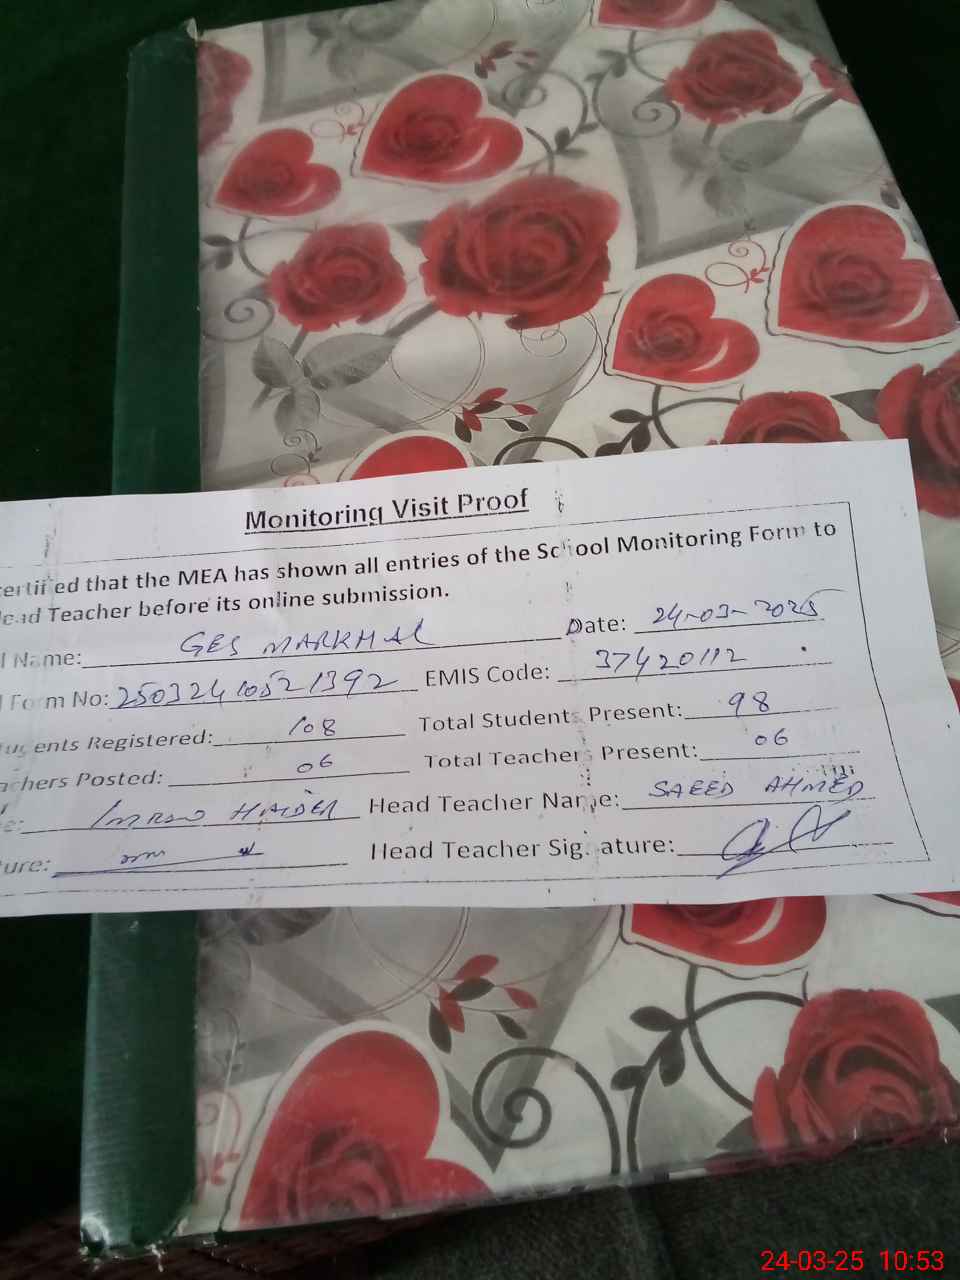 Monitoring Visit Proof
certified that the MEA has shown all entries of the School Monitoring Form to
ead Teacher before its online submission.
l Name: GES MARKHAL Date: 24-03-2025
Form No: 25032410521392 EMIS Code: 37420112
ents Registered: 108 Total Students Present: 98
achers Posted: 06 Total Teachers Present: 06
e: IMRAN HAIDER Head Teacher Name: SAEED AHMED
ure: Head Teacher Signature:
24-03-25 10:53